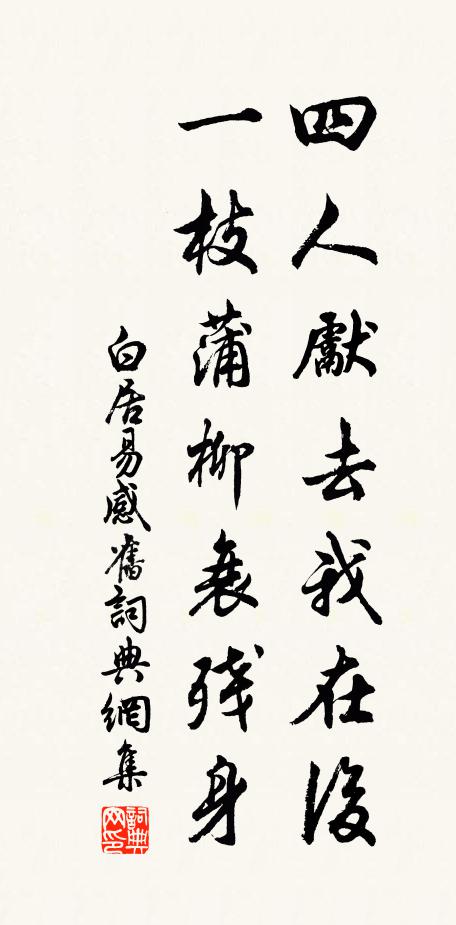 四人獻去我在後
一枝蒲柳衰残身
白居易感舊詞典網集
詞典
网印